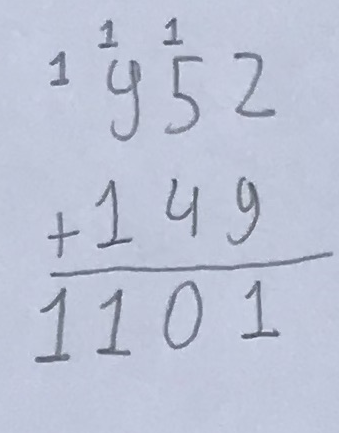 1 1
1 952
+ 149
1101